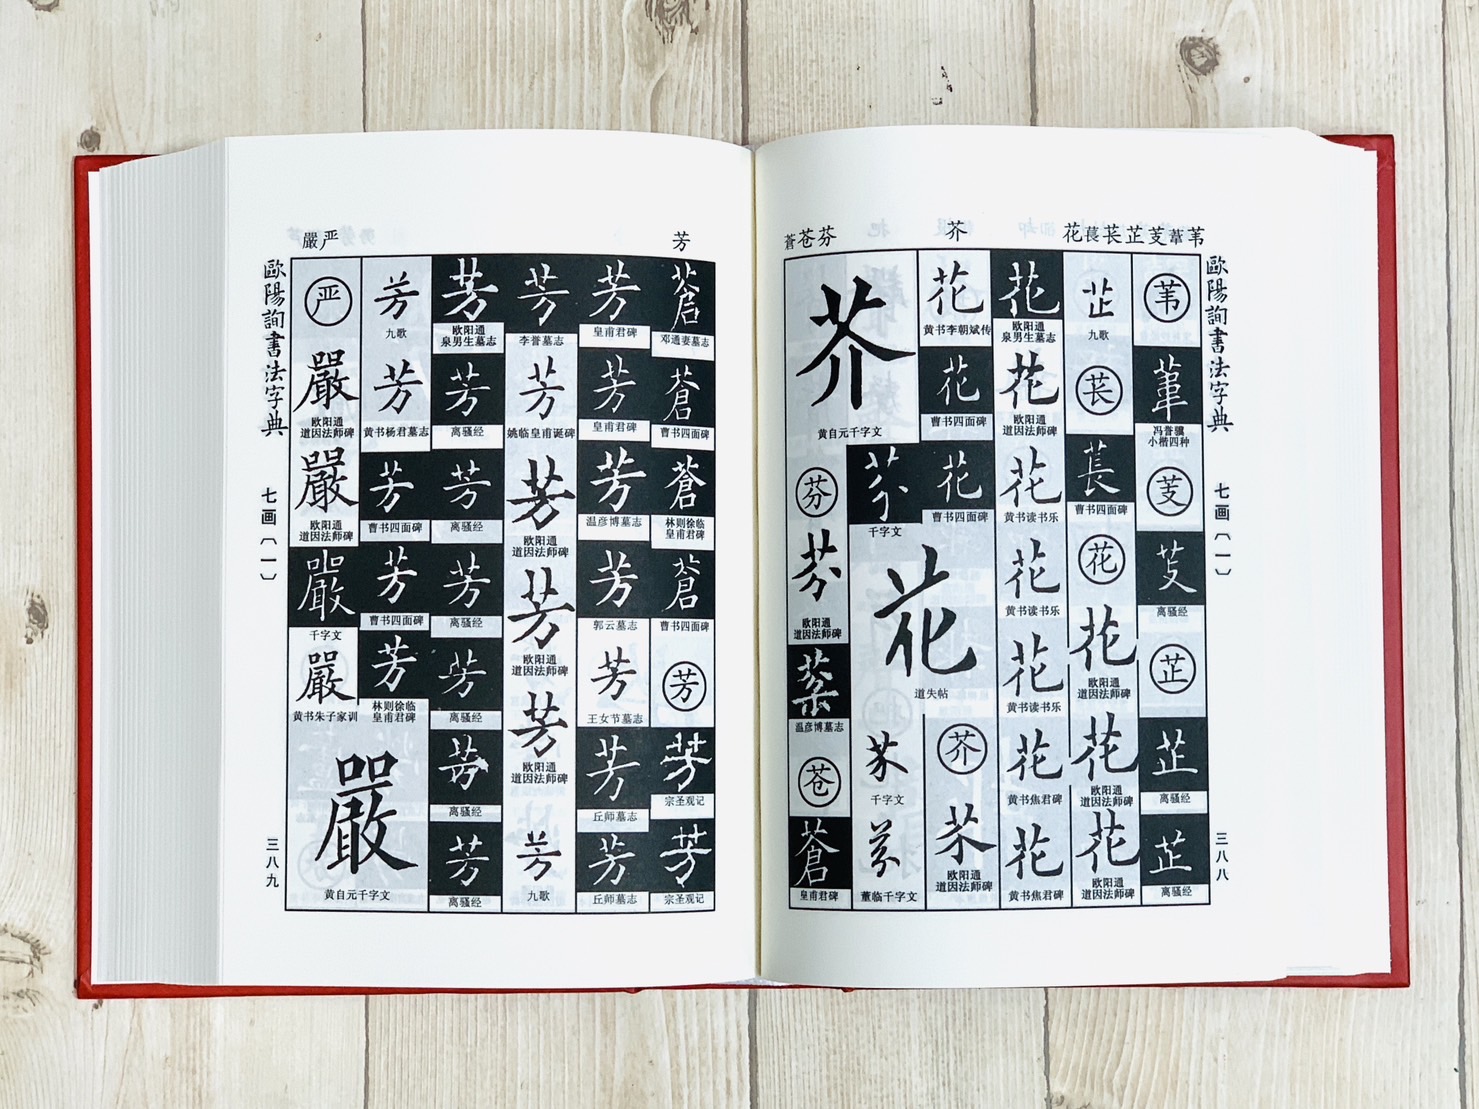 苇葦芰芷苌萇花
芥
芬苍蒼
歐陽詢書法字典
七画〔一〕
三八八
苇
葦
冯誉骥
小楷四种
芰
芰
离骚经
芷
芷
离骚经
芷
离骚经
芷
九歌
苌
萇
曹书四面碑
花
花
欧阳通
道因法师碑
花
欧阳通
道因法师碑
花
欧阳通
道因法师碑
花
欧阳通
泉男生墓志
花
欧阳通
道因法师碑
花
黄书读书乐
花
黄书读书乐
花
黄书读书乐
花
黄书焦君碑
花
黄书焦君碑
花
黄书李朝斌传
花
曹书四面碑
花
曹书四面碑
花
道失帖
芥
芥
欧阳通
道因法师碑
芥
千字文
芥
董临千字文
芥
黄自元千字文
芬
芬
千字文
芬
欧阳通
道因法师碑
芬
温彦博墓志
苍
蒼
皇甫君碑
芳
严嚴
歐陽詢書法字典
七画〔一〕
三八九
蒼
邓通妻墓志
蒼
曹书四面碑
蒼
林则徐临
皇甫君碑
蒼
曹书四面碑
芳
芳
宗圣观记
芳
宗圣观记
芳
皇甫君碑
芳
皇甫君碑
芳
温彦博墓志
芳
郭云墓志
芳
王女节墓志
芳
丘师墓志
芳
丘师墓志
芳
李誉墓志
芳
姚临皇甫诞碑
芳
欧阳通
道因法师碑
芳
欧阳通
道因法师碑
芳
欧阳通
道因法师碑
芳
九歌
芳
欧阳通
泉男生墓志
芳
离骚经
芳
离骚经
芳
离骚经
芳
离骚经
芳
离骚经
芳
离骚经
芳
九歌
芳
黄书杨君墓志
芳
曹书四面碑
芳
曹书四面碑
芳
林则徐临
皇甫君碑
严
嚴
欧阳通
道因法师碑
嚴
欧阳通
道因法师碑
嚴
千字文
嚴
黄书朱子家训
嚴
黄自元千字文